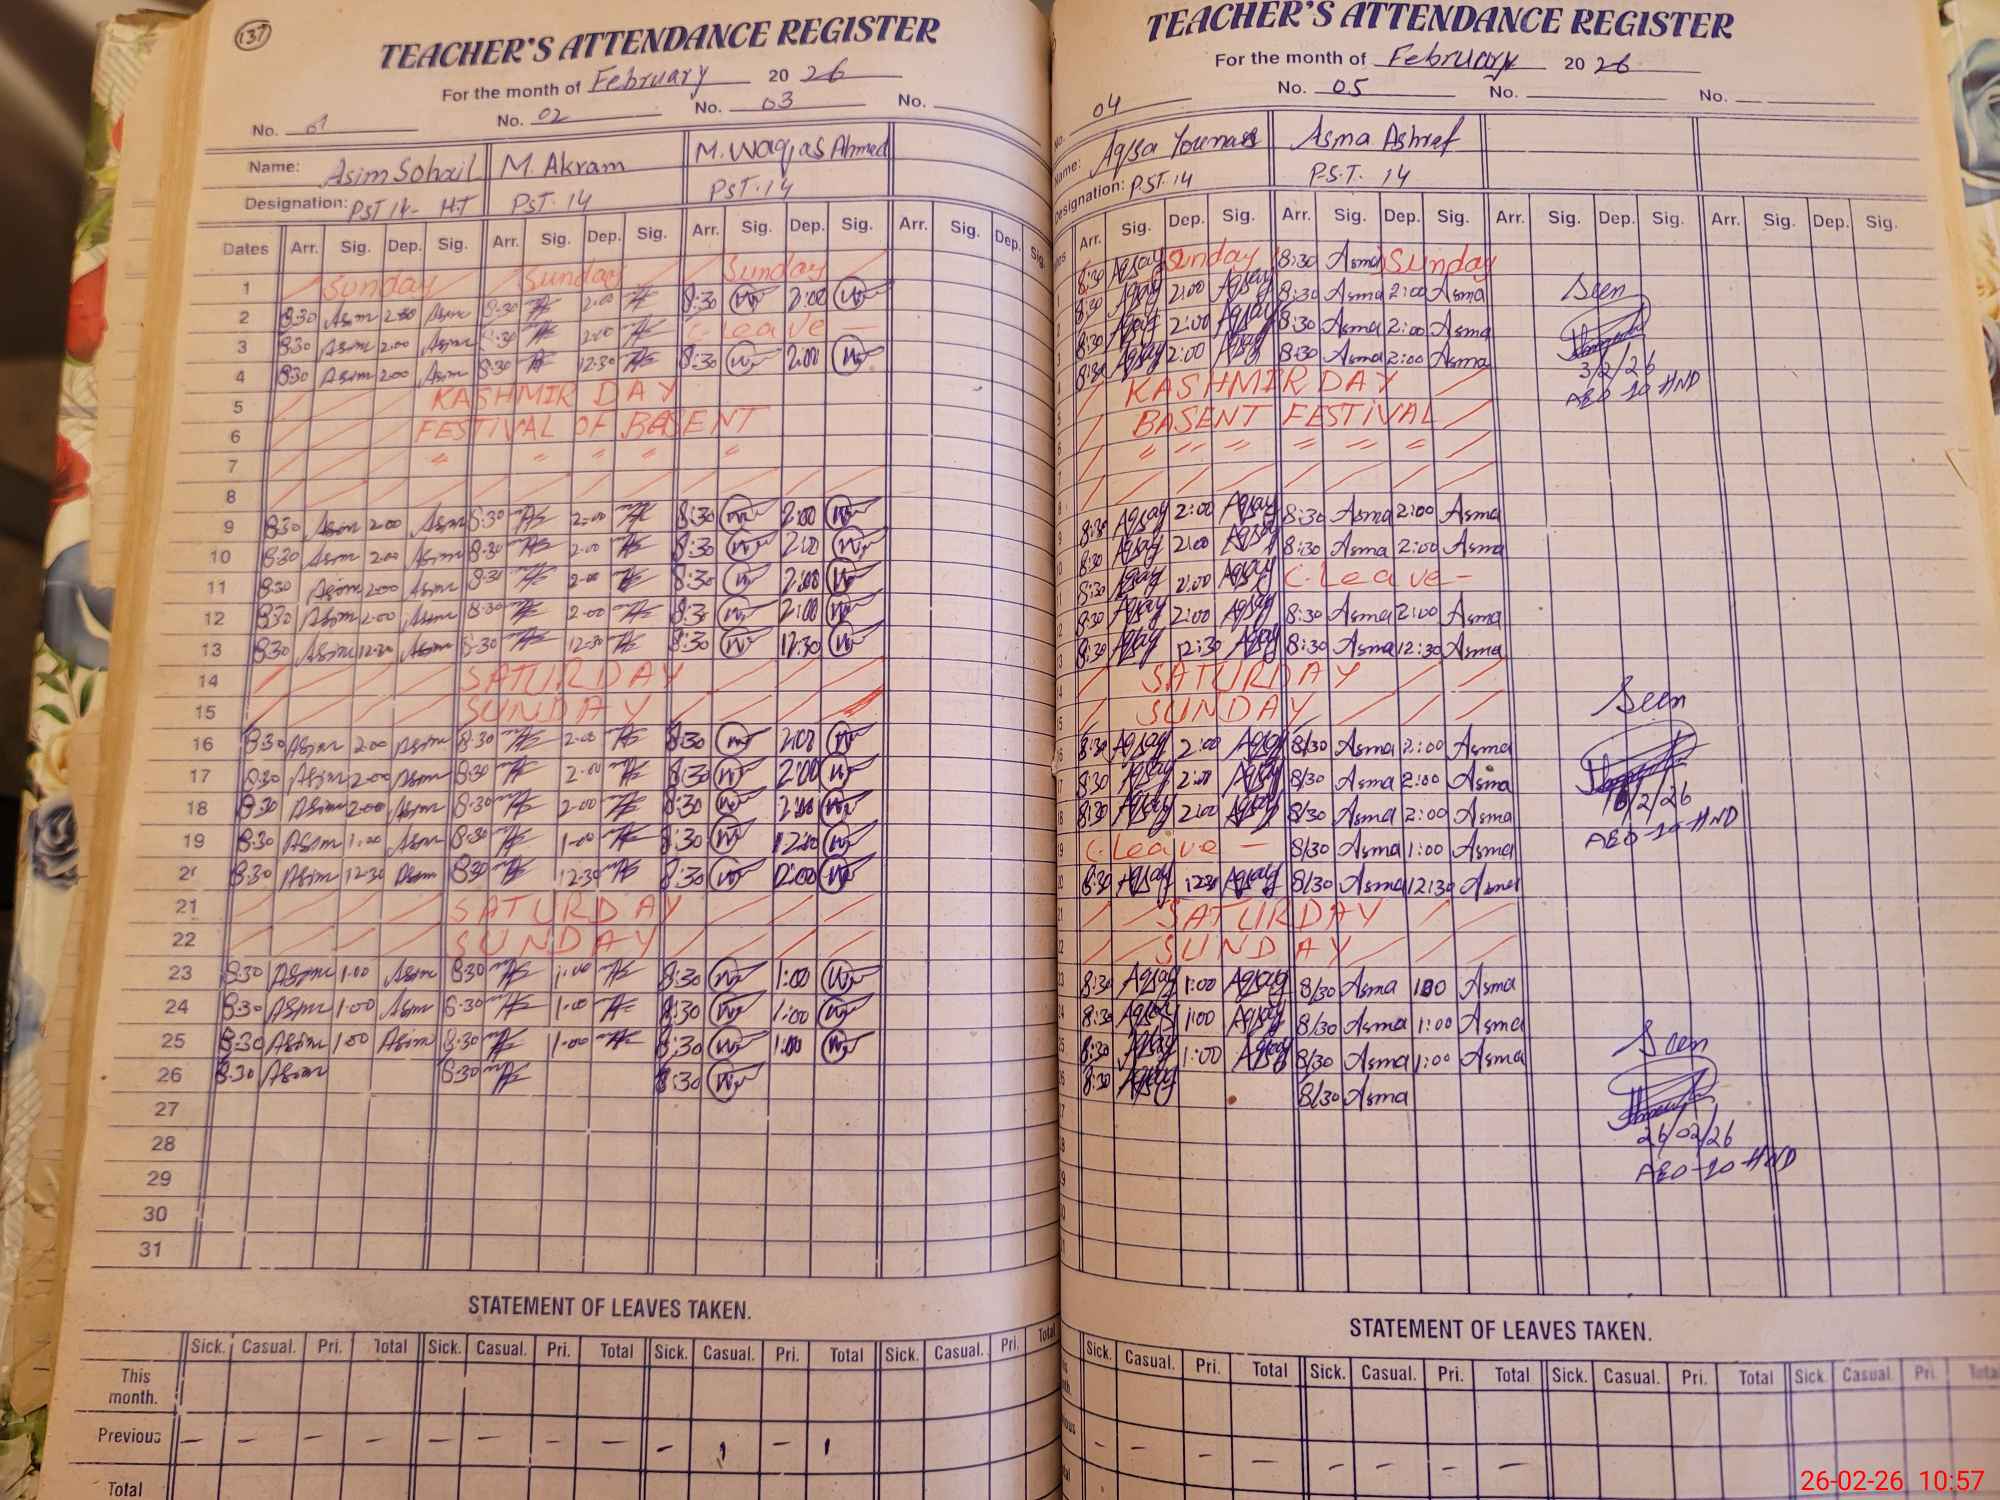 137
TEACHER'S ATTENDANCE REGISTER
For the month of February 20 26
No. 01 No. 02 No. 03 No.
Name: Asim Sohail M. Akram M. Waqas Ahmed
Designation: PST 14- H.T PST. 14 PST. 14
Dates Arr. Sig. Dep. Sig. Arr. Sig. Dep. Sig. Arr. Sig. Dep. Sig. Arr. Sig. Dep. Sig.
1 Sunday Sunday Sunday
2 8:30 Asim 2:00 Asim 8:30 2:00 8:30 2:00
3 8:30 Asim 2:00 Asim 8:30 2:00 C. Leave -
4 8:30 Asim 2:00 Asim 8:30 12:30 8:30 2:00
5 KASHMIR DAY
6 FESTIVAL OF BASENT
7 " " " " "
8
9 8:30 Asim 2:00 Asim 8:30 2:00 8:30 2:00
10 8:30 Asim 2:00 Asim 8:30 2:00 8:30 2:00
11 8:30 Asim 2:00 Asim 8:30 2:00 8:30 2:00
12 8:30 Asim 2:00 Asim 8:30 2:00 8:30 2:00
13 8:30 Asim 12:30 Asim 8:30 12:30 8:30 12:30
14 SATURDAY
15 SUNDAY
16 8:30 Asim 2:00 Asim 8:30 2:00 8:30 2:00
17 8:30 Asim 2:00 Asim 8:30 2:00 8:30 2:00
18 8:30 Asim 2:00 Asim 8:30 2:00 8:30 2:00
19 8:30 Asim 1:00 Asim 8:30 1:00 8:30
20 8:30 Asim 12:30 Asim 8:30 12:30 8:30
21 SATURDAY
22 SUNDAY
23 8:30 Asim 1:00 Asim 8:30 1:00 8:30 1:00
24 8:30 Asim 1:00 Asim 8:30 1:00 8:30 1:00
25 8:30 Asim 1:00 Asim 8:30 1:00 8:30 1:00
26 8:30 Asim 8:30 8:30
27
28
29
30
31
STATEMENT OF LEAVES TAKEN.
Sick. Casual. Pri. Total Sick. Casual. Pri. Total Sick. Casual. Pri. Total Sick. Casual. Pri. Total
This month.
Previous - - - - - - - - - 1 - 1
Total
TEACHER'S ATTENDANCE REGISTER
For the month of February 20 26
No. 04 No. 05 No. No.
Name: Aqsa Younas Asma Ashraf
Designation: PST. 14 P.S.T. 14
Arr. Sig. Dep. Sig. Arr. Sig. Dep. Sig. Arr. Sig. Dep. Sig. Arr. Sig. Dep. Sig.
8:30 Aqsay Sunday 8:30 Asma Sunday
8:30 Aqsay 2:00 Aqsay 8:30 Asma 2:00 Asma
8:30 Aqsay 2:00 Aqsay 8:30 Asma 2:00 Asma
8:30 Aqsay 2:00 Aqsay 8:30 Asma 2:00 Asma
KASHMIR DAY
BASENT FESTIVAL
" " " " " "
8:30 Aqsay 2:00 Aqsay 8:30 Asma 2:00 Asma
8:30 Aqsay 2:00 Aqsay 8:30 Asma 2:00 Asma
8:30 Aqsay 2:00 Aqsay C. Leave -
8:30 Aqsay 2:00 Aqsay 8:30 Asma 2:00 Asma
8:30 Aqsay 12:30 Aqsay 8:30 Asma 12:30 Asma
SATURDAY
SUNDAY
8:30 Aqsay 2:00 Aqsay 8/30 Asma 2:00 Asma
8:30 Aqsay 2:00 Aqsay 8/30 Asma 2:00 Asma
8:30 Aqsay 2:00 Aqsay 8/30 Asma 2:00 Asma
C. Leave - 8/30 Asma 1:00 Asma
8:30 Aqsay 12:30 Aqsay 8/30 Asma 12:30 Asma
SATURDAY
SUNDAY
8:30 Aqsay 1:00 Aqsay 8/30 Asma 1:00 Asma
8:30 Aqsay 1:00 Aqsay 8/30 Asma 1:00 Asma
8:30 Aqsay 1:00 Aqsay 8/30 Asma 1:00 Asma
8:30 Aqsay 8/30 Asma
Seen
3/2/26
AEO-10 HND
Seen
/2/26
AEO-10-HND
Seen
26/02/26
AEO-10-HND
STATEMENT OF LEAVES TAKEN.
Sick. Casual. Pri. Total Sick. Casual. Pri. Total Sick. Casual. Pri. Total Sick. Casual. Pri. Total
- - - - - - - -
26-02-26 10:57